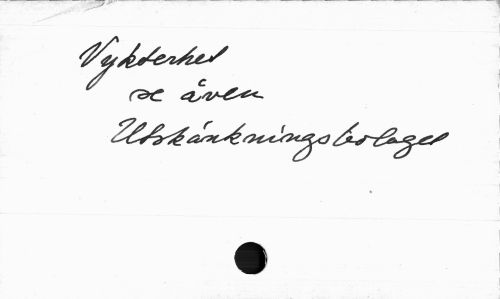 Nykterhet
se även
Utskänkningsbolaget